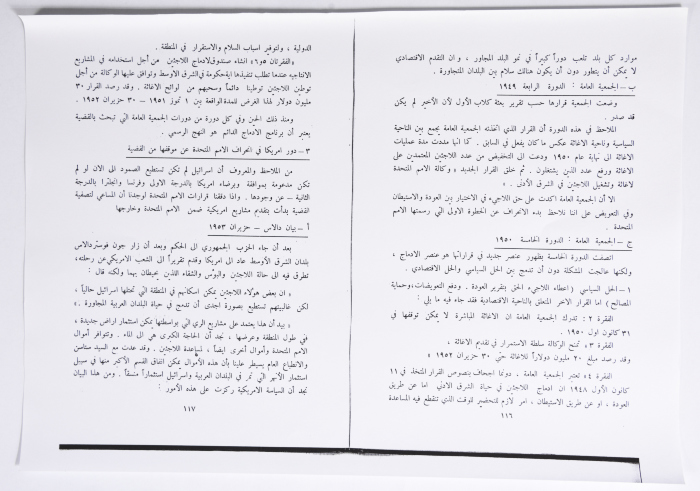 موارد كل بلد تلعب دوراً كبيراً في نمو البلد المجاور ، وان التقدم الاقتصادي
لا يمكن أن يتطور دون أن يكون هنالك سلام بين البلدان المتجاورة .
ب – الجمعية العامة : الدورة الرابعة ١٩٤٩
وضعت الجمعية قرارها حسب تقرير بعثة كلاب الأول لأن الأخير لم يكن
قد صدر .
الملاحظ في هذه الدورة أن القرار الذي اتخذته الجمعية العامة يجمع بين الناحية
السياسية وناحية الاغاثة عكس ما كان يفعل في السابق . كما انها مددت مدة عمليات
الاغاثة الى نهاية عام ١٩٥٠ ودعت الى التخفيض من عدد اللاجئين المعتمدين على
الاغاثة ورفع عدد الذين يشتغلون . ثم خلق القرار الجديد « وكالة الامم المتحدة
لاغاثة وتشغيل اللاجئين في الشرق الأدنى . »
الا أن الجمعية العامة اكدت على حق اللاجىء في الاختيار بين العودة والاستيطان
وفي التعويض على اننا نلاحظ بدء الانحراف عن الخطوة الاولى التي رسمتها الامم
المتحدة .
ج – الجمعية العامة : الدورة الخامسة ١٩٥٠
اتصفت الدورة الخامسة بظهور عنصر جديد في قراراتها هو عنصر الادماج ،
ولكنها عالجت المشكلة دون أن تدمج بين الحل السياسي والحل الاقتصادي .
١ – الحل السياسي ( اعطاء اللاجىء الحق بتقرير العودة . ودفع التعويضات ، وحماية
المصالح ) اما القرار الاخر المتعلق بالناحية الاقتصادية فقد جاء فيه ما يلي :
الفقرة ٢ : تدرك الجمعية العامة ان الاغاثة المباشرة لا يمكن توقفها في
٣١ كانون اول ١٩٥٠ .
الفقرة ٣ . تمنح الوكالة سلطة الاستمرار في تقديم الاغاثة ،
وقد رصد مبلغ ٢٠ مليون دولاراً للاغاثة حتى ٣٠ حزيران ١٩٥٢ »
الفقرة ٤ « تعتبر الجمعية العامة . دونما اجحاف بنصوص القرار المتخذ في ١١
كانون الأول ١٩٤٨ ان ادماج اللاجئين في حياة الشرق الادنى اما عن طريق
العودة ، او عن طريق الاستيطان ، امر لازم للتحضير للوقت الذي تنقطع فيه المساعدة
١١٦
الدولية ، ولتوفير اسباب السلام والاستقرار في المنطقة .
« الفقرتان ٥ و ٦ » انشاء صندوق لادماج اللاجئين من أجل استخدامه في المشاريع
الانتاجيه عندما تطلب تنفيذها اية حكومة في الشرق الاوسط وتوافق عليها الوكالة من أجل
توطين اللاجئين توطينا دائماً وسحبهم من لوائح الاغاثة . وقد رصد القرار ٣٠
مليون دولار لهذا الغرض للمدة الواقعة بين ١ تموز ١٩٥١ – ٣٠ حزيران ١٩٥٢ .
ومنذ ذلك الحين وفي كل دورة من دورات الجمعية العامة التي تبحث بالقضية
يعتبر أن برنامج الادماج الدائم هو النهج الرسمي .
٣ – دور امريكا في انحراف الامم المتحدة عن موقفها من القضية
من الملاحظ والمعروف أن اسرائيل لم تكن تستطيع الصمود الى الان لو لم
تكن مدعومة بموافقة وبرضاء امريكا بالدرجة الاولى وفرنسا وانجلترا بالدرجة
الثانية – عن وجودها . واذا دققنا قرارات الامم المتحدة لوجدنا أن المساعي لتصفية
القضية بدأت بتقديم مشاريع امريكية ضمن الامم المتحدة وخارجها
أ – بيان دالاس – حزيران ١٩٥٣
بعد أن جاء الحزب الجمهوري الى الحكم وبعد أن زار جون فوستر دالاس
بلدان الشرق الاوسط عاد الى امريكا وقدم تقريراً الى الشعب الامريكي عن رحلته ،
تطرق فيه الى حالة اللاجئين والبؤس والشقاء اللذين يحيطان بهما ولكنه قال :
« ان بعض هؤلاء اللاجئين يمكن اسكانهم في المنطقة التي تحتلها اسرائيل حالياً ،
لكن غالبيتهم تستطيع بصورة اجدى أن تدمج في حياة البلدان العربية المجاورة . »
« بيد أن هذا يعتمد على مشاريع الري التي بواسطتها يمكن استثمار اراض جديدة ،
ففي طول المنطقة وعرضها ، نجد أن الحاجة الكبرى هي الى الماء . وتتوافر أموال
الامم المتحدة وأموال أخرى ايضاً ، لمساعدة اللاجئين . وقد عدت مع السيد ستاسن
والانطباع العام يسيطر علينا بأن هذه الأموال يمكن انفاق القسم الأكبر منها في سبيل
استثمار الأنهر التي تمر في البلدان العربية واسرائيل استثماراً منسقاً . ومن هذا البيان
نجد أن السياسة الامريكية ركزت على هذه الأمور :
١١٧